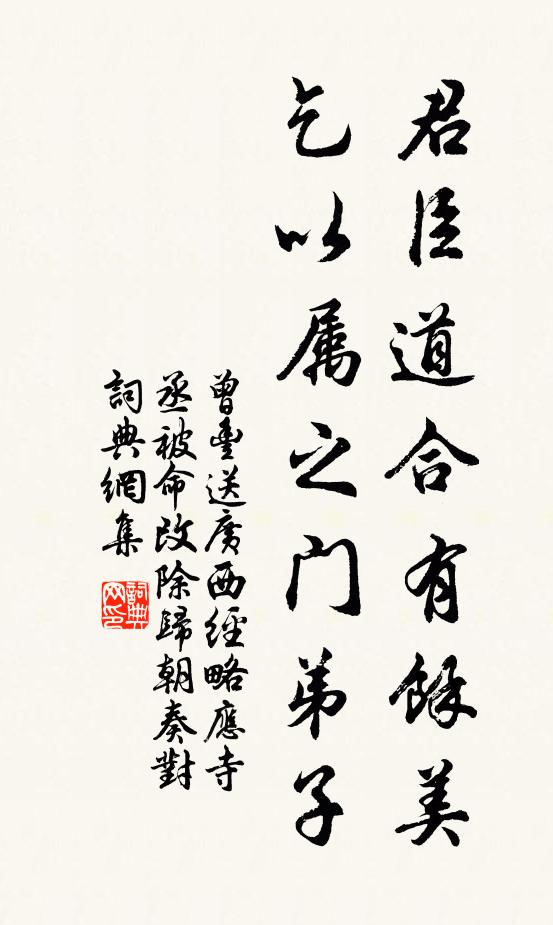 君臣道合有餘美
乞以属之門弟子
曾豊送廣西經略應寺
丞被命改除歸朝奏對
詞典網集
詞典
网印